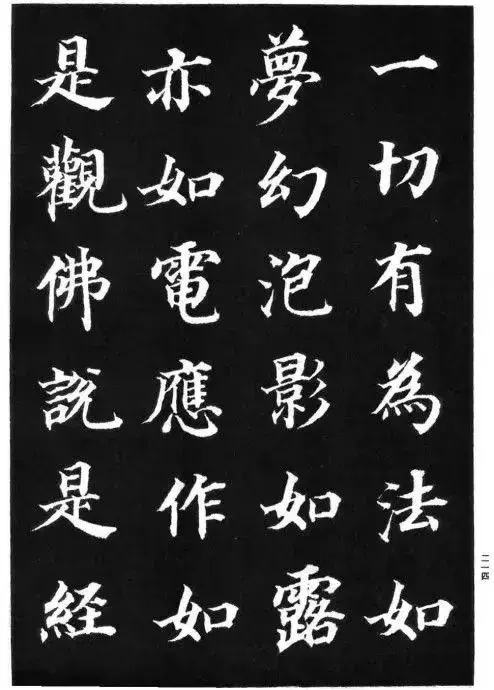 一切有為法如
夢幻泡影如露
亦如電應作如
是觀佛說是經
二一四